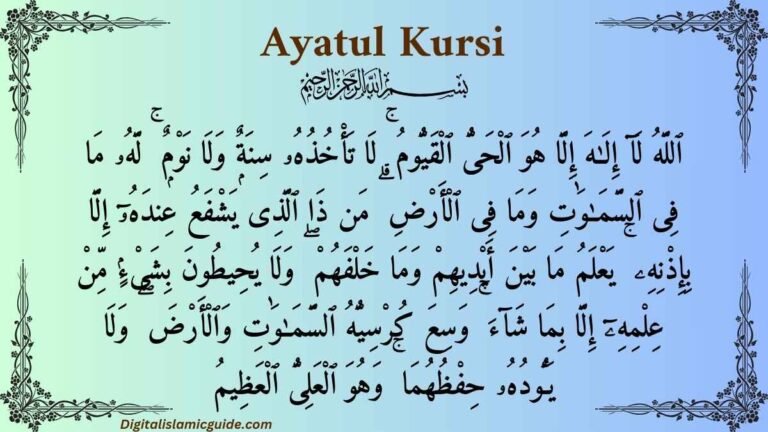 Ayatul Kursi
بِسْمِ اللَّهِ الرَّحْمَٰنِ الرَّحِيمِ
ٱللَّهُ لَآ إِلَـٰهَ إِلَّا هُوَ ٱلْحَىُّ ٱلْقَيُّومُ ۚ لَا تَأْخُذُهُۥ سِنَةٌۭ وَلَا نَوْمٌۭ ۚ لَّهُۥ مَا
فِى ٱلسَّمَـٰوَٰتِ وَمَا فِى ٱلْأَرْضِ ۗ مَن ذَا ٱلَّذِى يَشْفَعُ عِندَهُۥٓ إِلَّا
بِإِذْنِهِۦ ۚ يَعْلَمُ مَا بَيْنَ أَيْدِيهِمْ وَمَا خَلْفَهُمْ ۖ وَلَا يُحِيطُونَ بِشَىْءٍۢ مِّنْ
عِلْمِهِۦٓ إِلَّا بِمَا شَآءَ ۚ وَسِعَ كُرْسِيُّهُ ٱلسَّمَـٰوَٰتِ وَٱلْأَرْضَ ۖ وَلَا
يَـُٔودُهُۥ حِفْظُهُمَا ۚ وَهُوَ ٱلْعَلِىُّ ٱلْعَظِيمُ
Digitalislamicguide.com